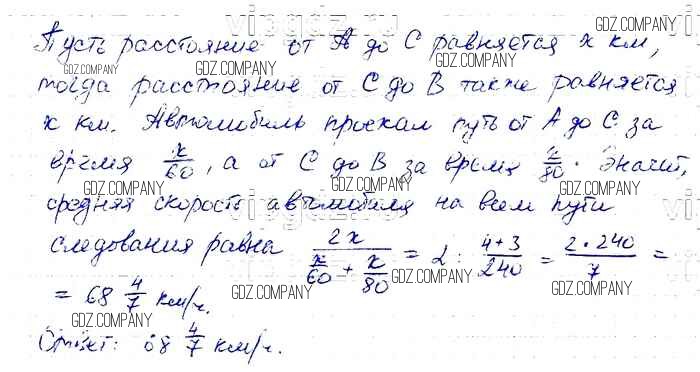 Пусть расстояние от А до С равняется x км,
тогда расстояние от С до В также равняется
x км. Автомобиль проехал путь от А до С за
время x/60, а от С до В за время x/80. Значит,
средняя скорость автомобиля на всем пути
следования равна 2x/(x/60 + x/80) = 2 : (4+3)/240 = (2·240)/7 =
= 68 4/7 км/ч.
Ответ: 68 4/7 км/ч.
GDZ.COMPANY
GDZ.COMPANY
GDZ.COMPANY
GDZ.COMPANY
GDZ.COMPANY
GDZ.COMPANY
GDZ.COMPANY
GDZ.COMPANY
GDZ.COMPANY
GDZ.COMPANY
GDZ.COMPANY
GDZ.COMPANY
GDZ.COMPANY
GDZ.COMPANY